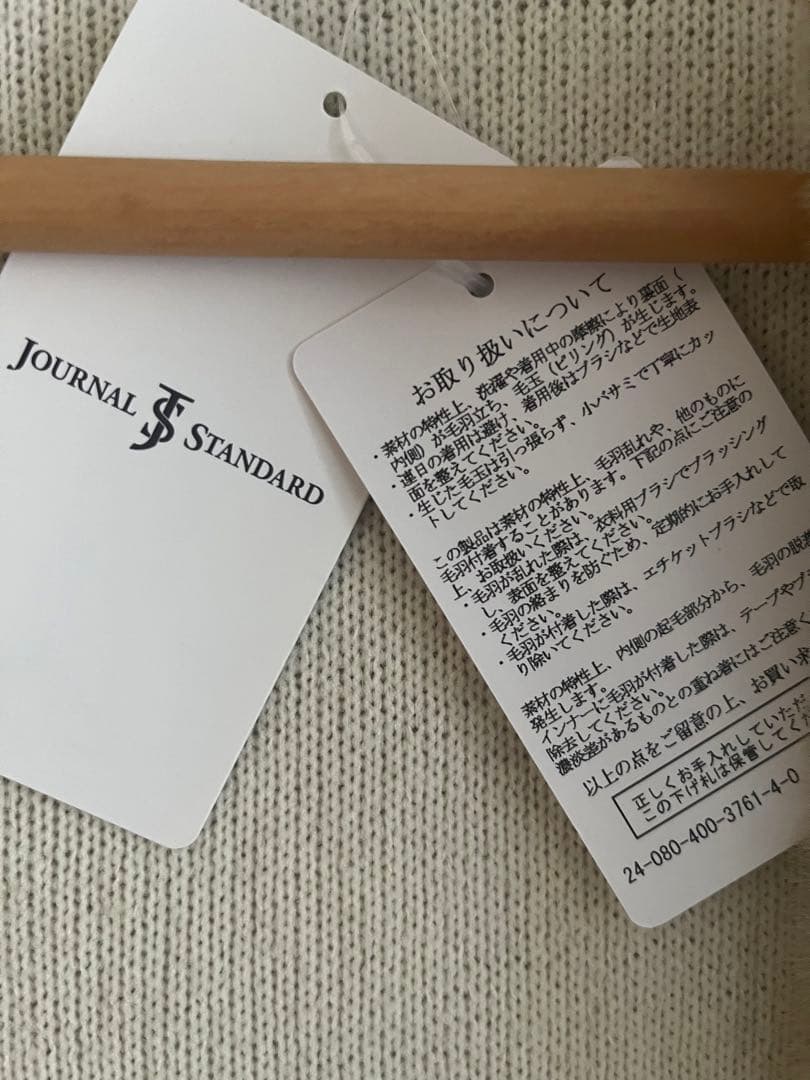 JOURNAL STANDARD
JS
お取り扱いについて
・素材の特性上、洗濯や着用中の摩擦により裏面（
内側）が毛羽立ち、毛玉（ピリング）が生じます。
・連日の着用は避け、着用後はブラシなどで生地表
面を整えてください。
・生じた毛玉は引っ張らず、小バサミで丁寧にカッ
トしてください。
この製品は素材の特性上、毛羽乱れや、他のものに
毛羽付着することがあります。下記の点にご注意の
上、お取扱いください。
・毛羽が乱れた際は、衣料用ブラシでブラッシング
し、表面を整えてください。
・毛羽の絡まりを防ぐため、定期的にお手入れして
ください。
・毛羽が付着した際は、エチケットブラシなどで取
り除いてください。
素材の特性上、内側の起毛部分から、毛羽の脱着
発生します。
インナーに毛羽が付着した際は、テープやブ
除去してください。
濃淡差があるものとの重ね着にはご注意く
以上の点をご留意の上、お買い求
正しくお手入れしていただ
この下げ札は保管してく
24-080-400-3761-4-0